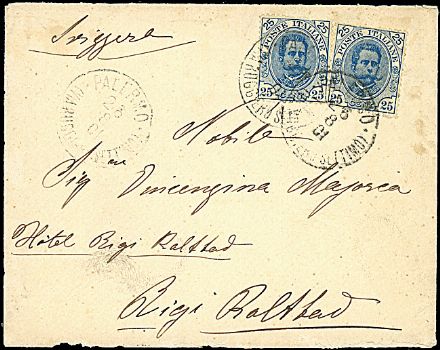 Svizzera
25 POSTE ITALIANE 25
25 25
25 POSTE ITALIANE 25
25 25
PALERMO
Nobile
Sig.na Vincenzina Majorca
Hôtel Rigi Kaltbad
Rigi Kaltbad